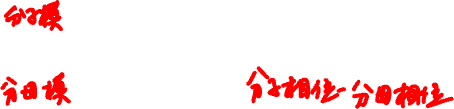 分子模
分母模
分子相位-分母相位